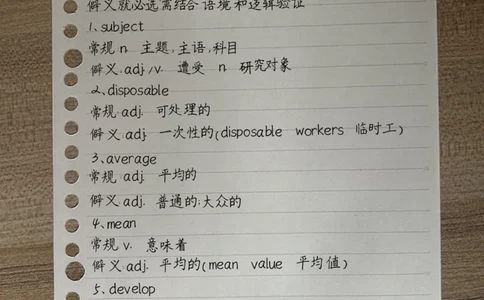 僻义就必选离结合语境和逻辑验证
1、subject
常规 n 主题,主语,科目
僻义.adj/v. 遭受 n 研究对象
2、disposable
常规.adj. 可处理的
僻义.adj 一次性的(disposable workers 临时工)
3、average
常规 adj. 平均的
僻义.adj. 普通的;大众的
4、mean
常规 v. 意味着
僻义.adj. 平均的(mean value 平均值)
5、develop